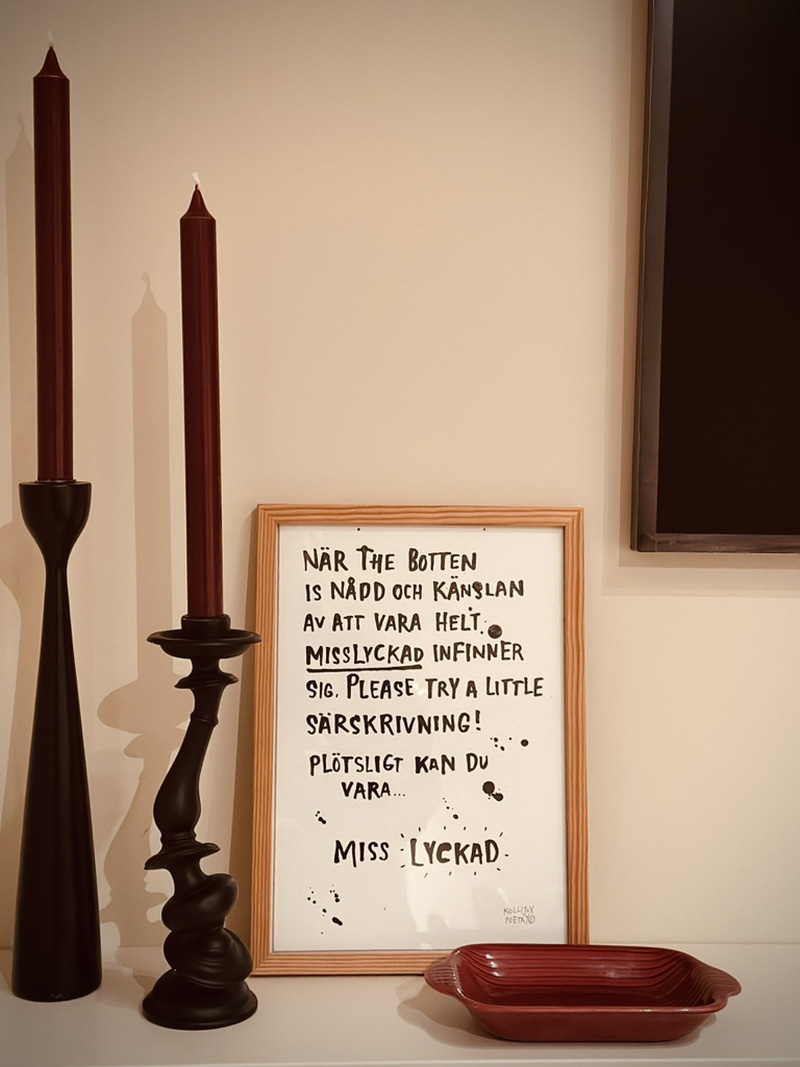 NÄR THE BOTTEN
IS NÅDD OCH KÄNSLAN
AV ATT VARA HELT
MISSLYCKAD INFINNER
SIG, PLEASE TRY A LITTLE
SÄRSKRIVNING!
PLÖTSLIGT KAN DU
VARA...
MISS LYCKAD